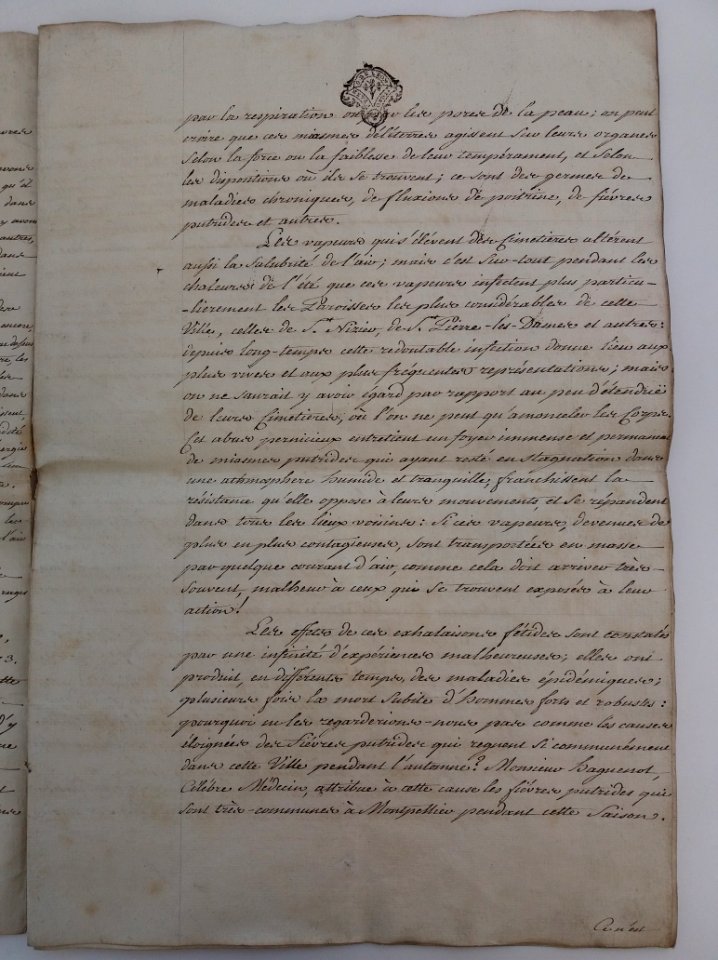 par la respiration ou par les pores de la peau; on peut
croire que ces miasmes délétères agissent sur leurs organes
selon la force ou la faiblesse de leur tempérament, et selon
les dispositions où ils se trouvent; ce sont des germes de
maladies chroniques, de fluxions de poitrine, de fièvres
putrides et autres.
Les vapeurs qui s'élèvent des Cimetières altèrent
aussi la salubrité de l'air; mais c'est sur-tout pendant les
chaleurs de l'été que ces vapeurs infectent plus particu-
-lièrement les Paroisses les plus considérables de cette
Ville, celles de St. Nizier, de St. Pierre-les-Dames et autres:
depuis long-temps cette redoutable infection donne lieu aux
plus vives et aux plus fréquentes représentations; mais
on ne saurait y avoir égard par rapport au peu d'étenduë
de leurs Cimetières, où l'on ne peut qu'amonceler les Corps.
Cet abus pernicieux entretient un foyer immense et permanent
de miasmes putrides qui ayant resté en Stagnation dans
une athmosphere humide et tranquille, franchissent la
résistance qu'elle oppose à leurs mouvements, et se répandent
dans tous les lieux voisins: Si ces vapeurs, devenues de
plus en plus contagieuses, sont transportées en masse
par quelque courant d'air, comme cela doit arriver très-
souvent, malheur à ceux qui se trouvent exposés à leur
action!
Les effets de ces exhalaisons fétides sont constatés
par une infinité d'expériences malheureuses; elles ont
produit, en différents temps, des maladies épidémiques;
plusieurs fois la mort subite d'hommes forts et robustes:
pourquoi ne les regarderions-nous pas comme les causes
éloignées des fièvres putrides qui regnent si communément
dans cette Ville pendant l'automne? Monsieur Haguenot,
Célèbre Médecin, attribue à cette cause les fièvres putrides qui
sont très-communes à Montpellier pendant cette Saison.
Ce n'est